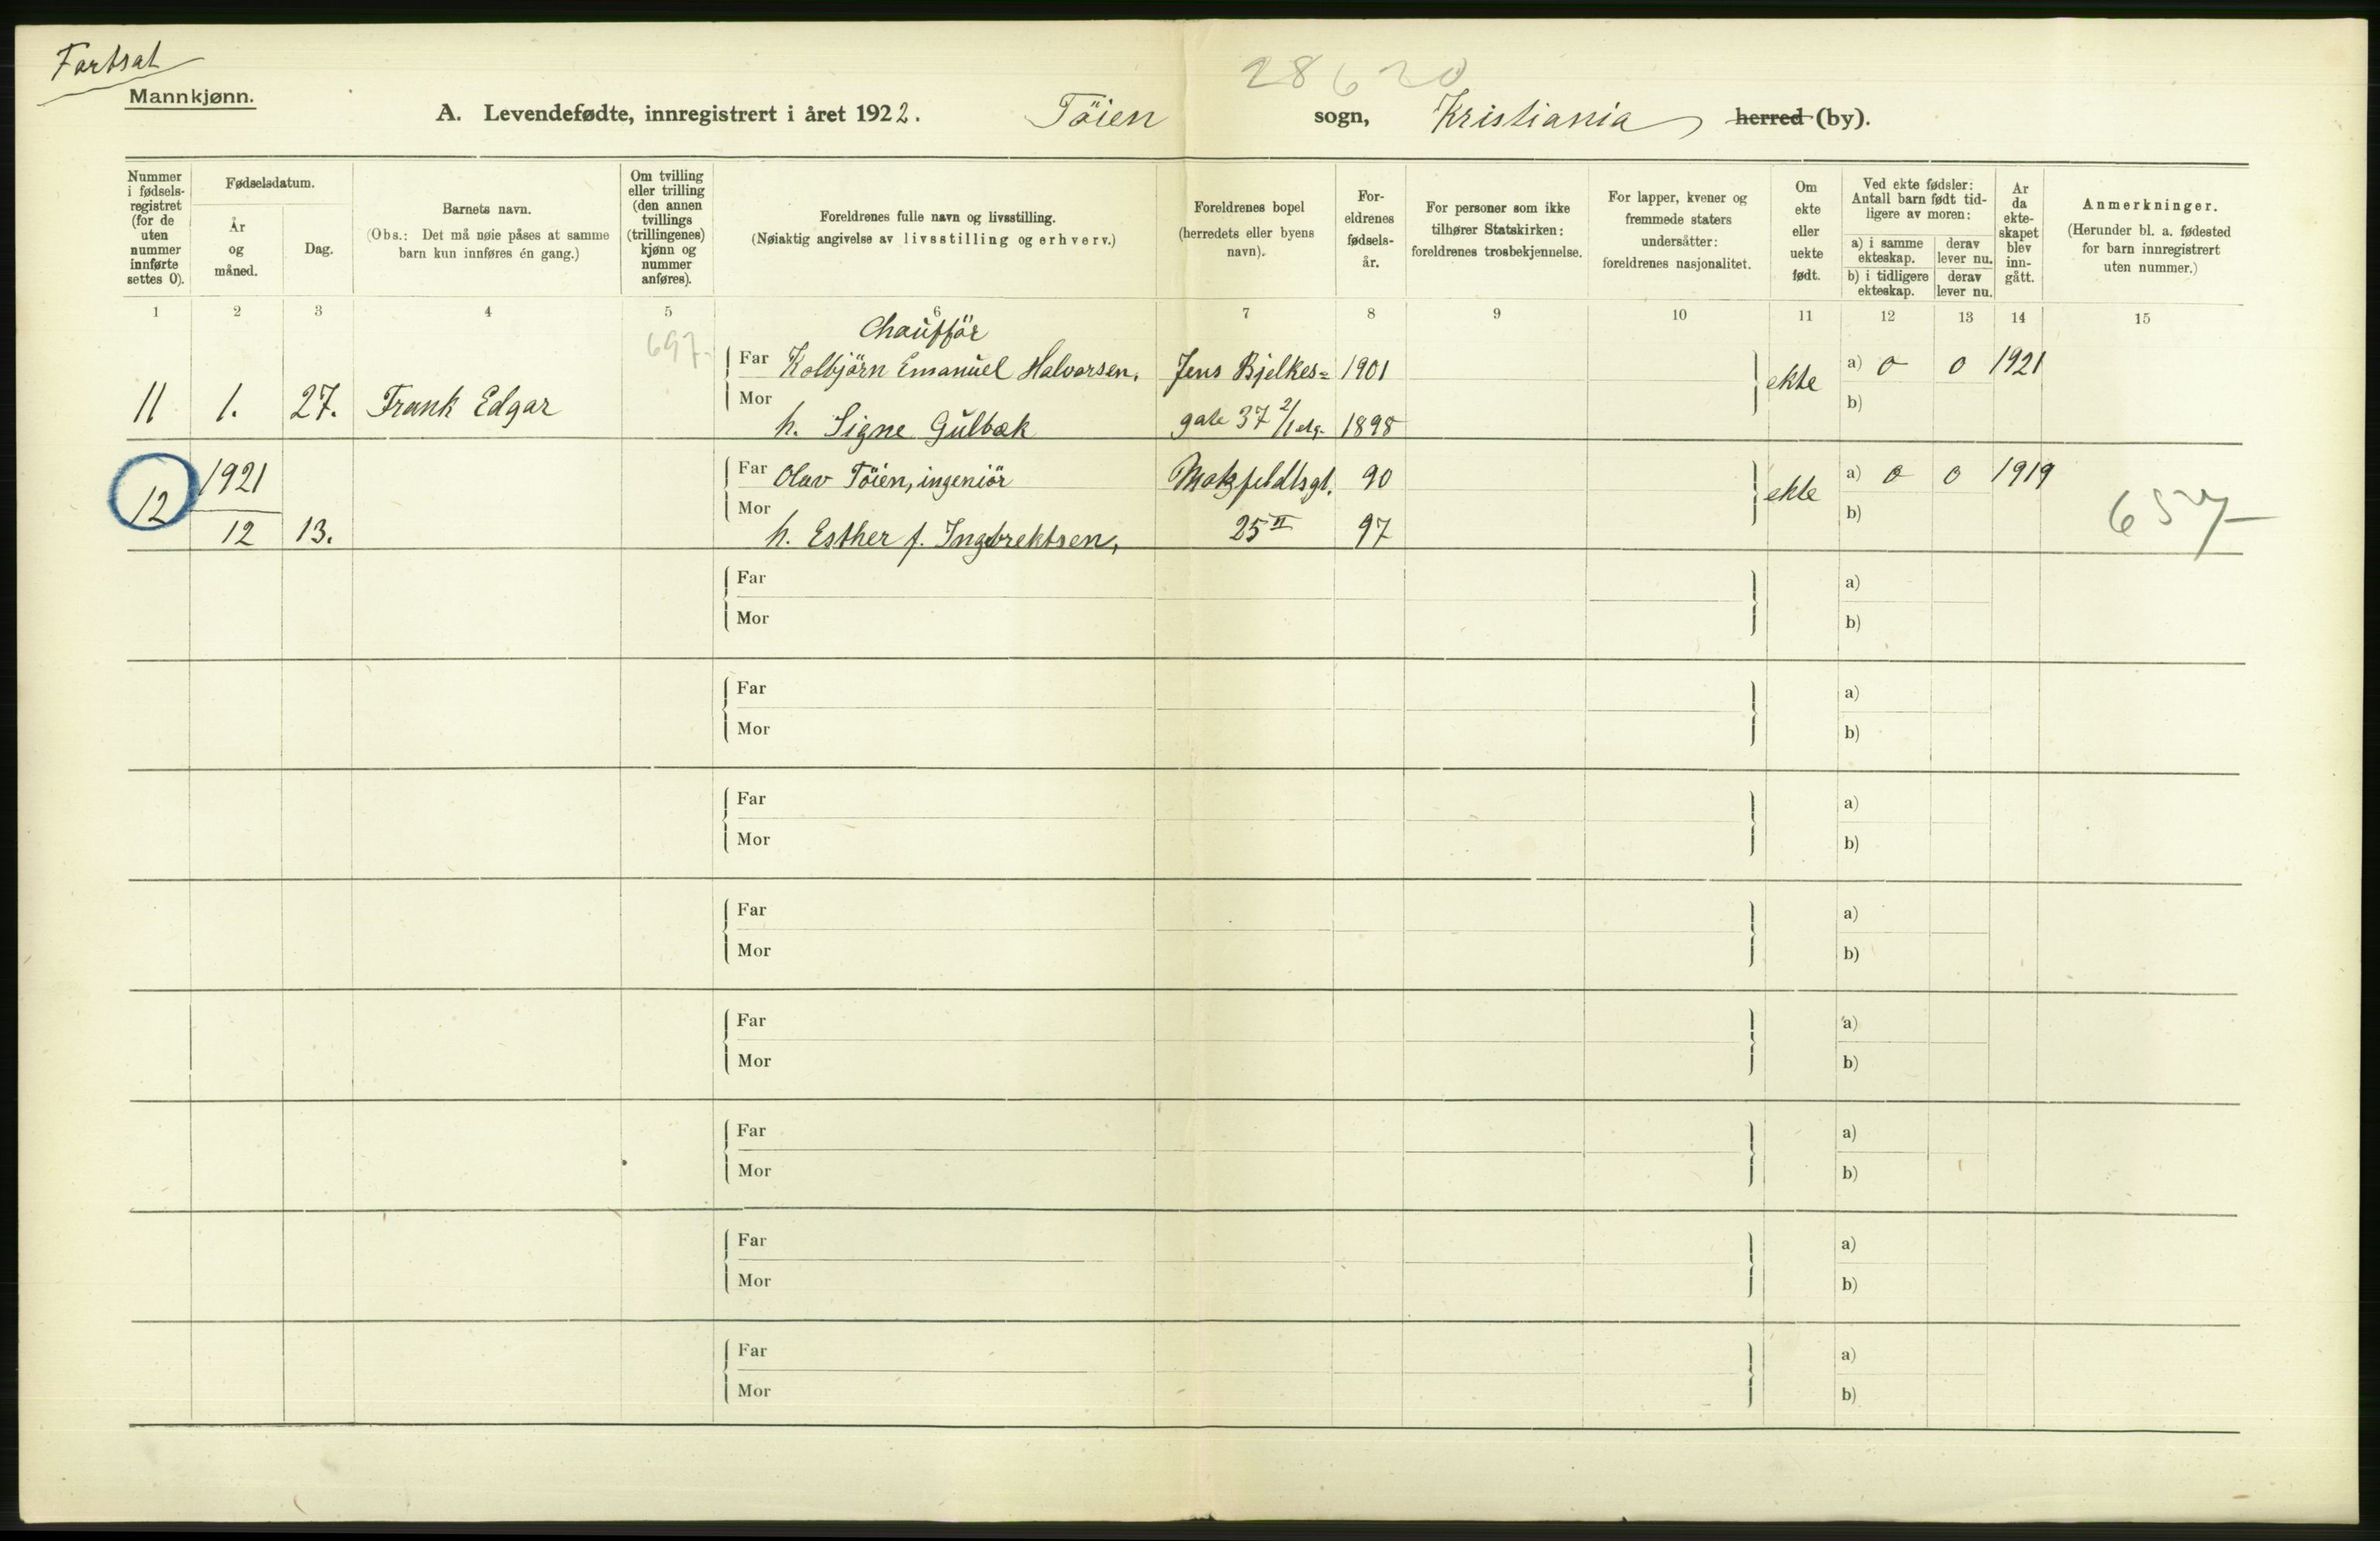 Fortsat
28620
Mannkjønn.
A. Levendefødte, innregistrert i året 1922. Töien sogn, Kristiania herred (by).
Nummer i fødsels- registret (for de uten nummer innførte settes 0).
Fødselsdatum.
År og måned.
Dag.
Barnets navn.
(Obs.: Det må nøie påses at samme barn kun innføres én gang.)
Om tvilling eller trilling (den annen tvillings (trillingenes) kjønn og nummer anføres).
Foreldrenes fulle navn og livsstilling.
(Nøiaktig angivelse av livsstilling og erhverv.)
Foreldrenes bopel (herredets eller byens navn).
For- eldrenes fødsels- år.
For personer som ikke tilhører Statskirken: foreldrenes trosbekjennelse.
For lapper, kvener og fremmede staters undersåtter: foreldrenes nasjonalitet.
Om ekte eller uekte født.
Ved ekte fødsler: Antall barn født tid- ligere av moren:
a) i samme ekteskap.
derav lever nu.
b) i tidligere ekteskap.
derav lever nu.
År da ekte- skapet blev inn- gått.
Anmerkninger.
(Herunder bl. a. fødested for barn innregistrert uten nummer.)
1 2 3 4 5 6 7 8 9 10 11 12 13 14 15
697.
Chaufför
Far Kolbjörn Emanuel Halvorsen. Jens Bjelkes= 1901 ekte a) 0 0 1921
11 1. 27. Frank Edgar
Mor h. Signe Gulbæk gate 37 2/ 1898 b)
1921 Far Olav Töien, ingeniör 90 ekte a) 0 0 1919
12 12 13. Mor h. Esther f. Ingebrektsen, 25 II 97 b) 657
Far a)
Mor b)
Far a)
Mor b)
Far a)
Mor b)
Far a)
Mor b)
Far a)
Mor b)
Far a)
Mor b)
Far a)
Mor b)
Far a)
Mor b)